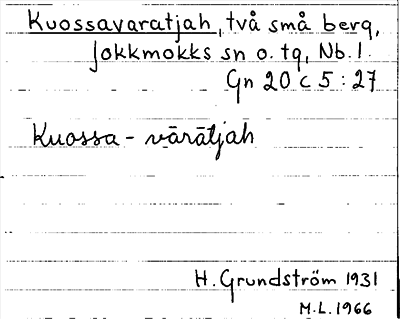 Kuossavaratjah, två små berg,
Jokkmokks sn o. tg, Nb. l.
Gn 20 c 5 : 27
Kuossa - vārātjah
H. Grundström 1931
M.L. 1966